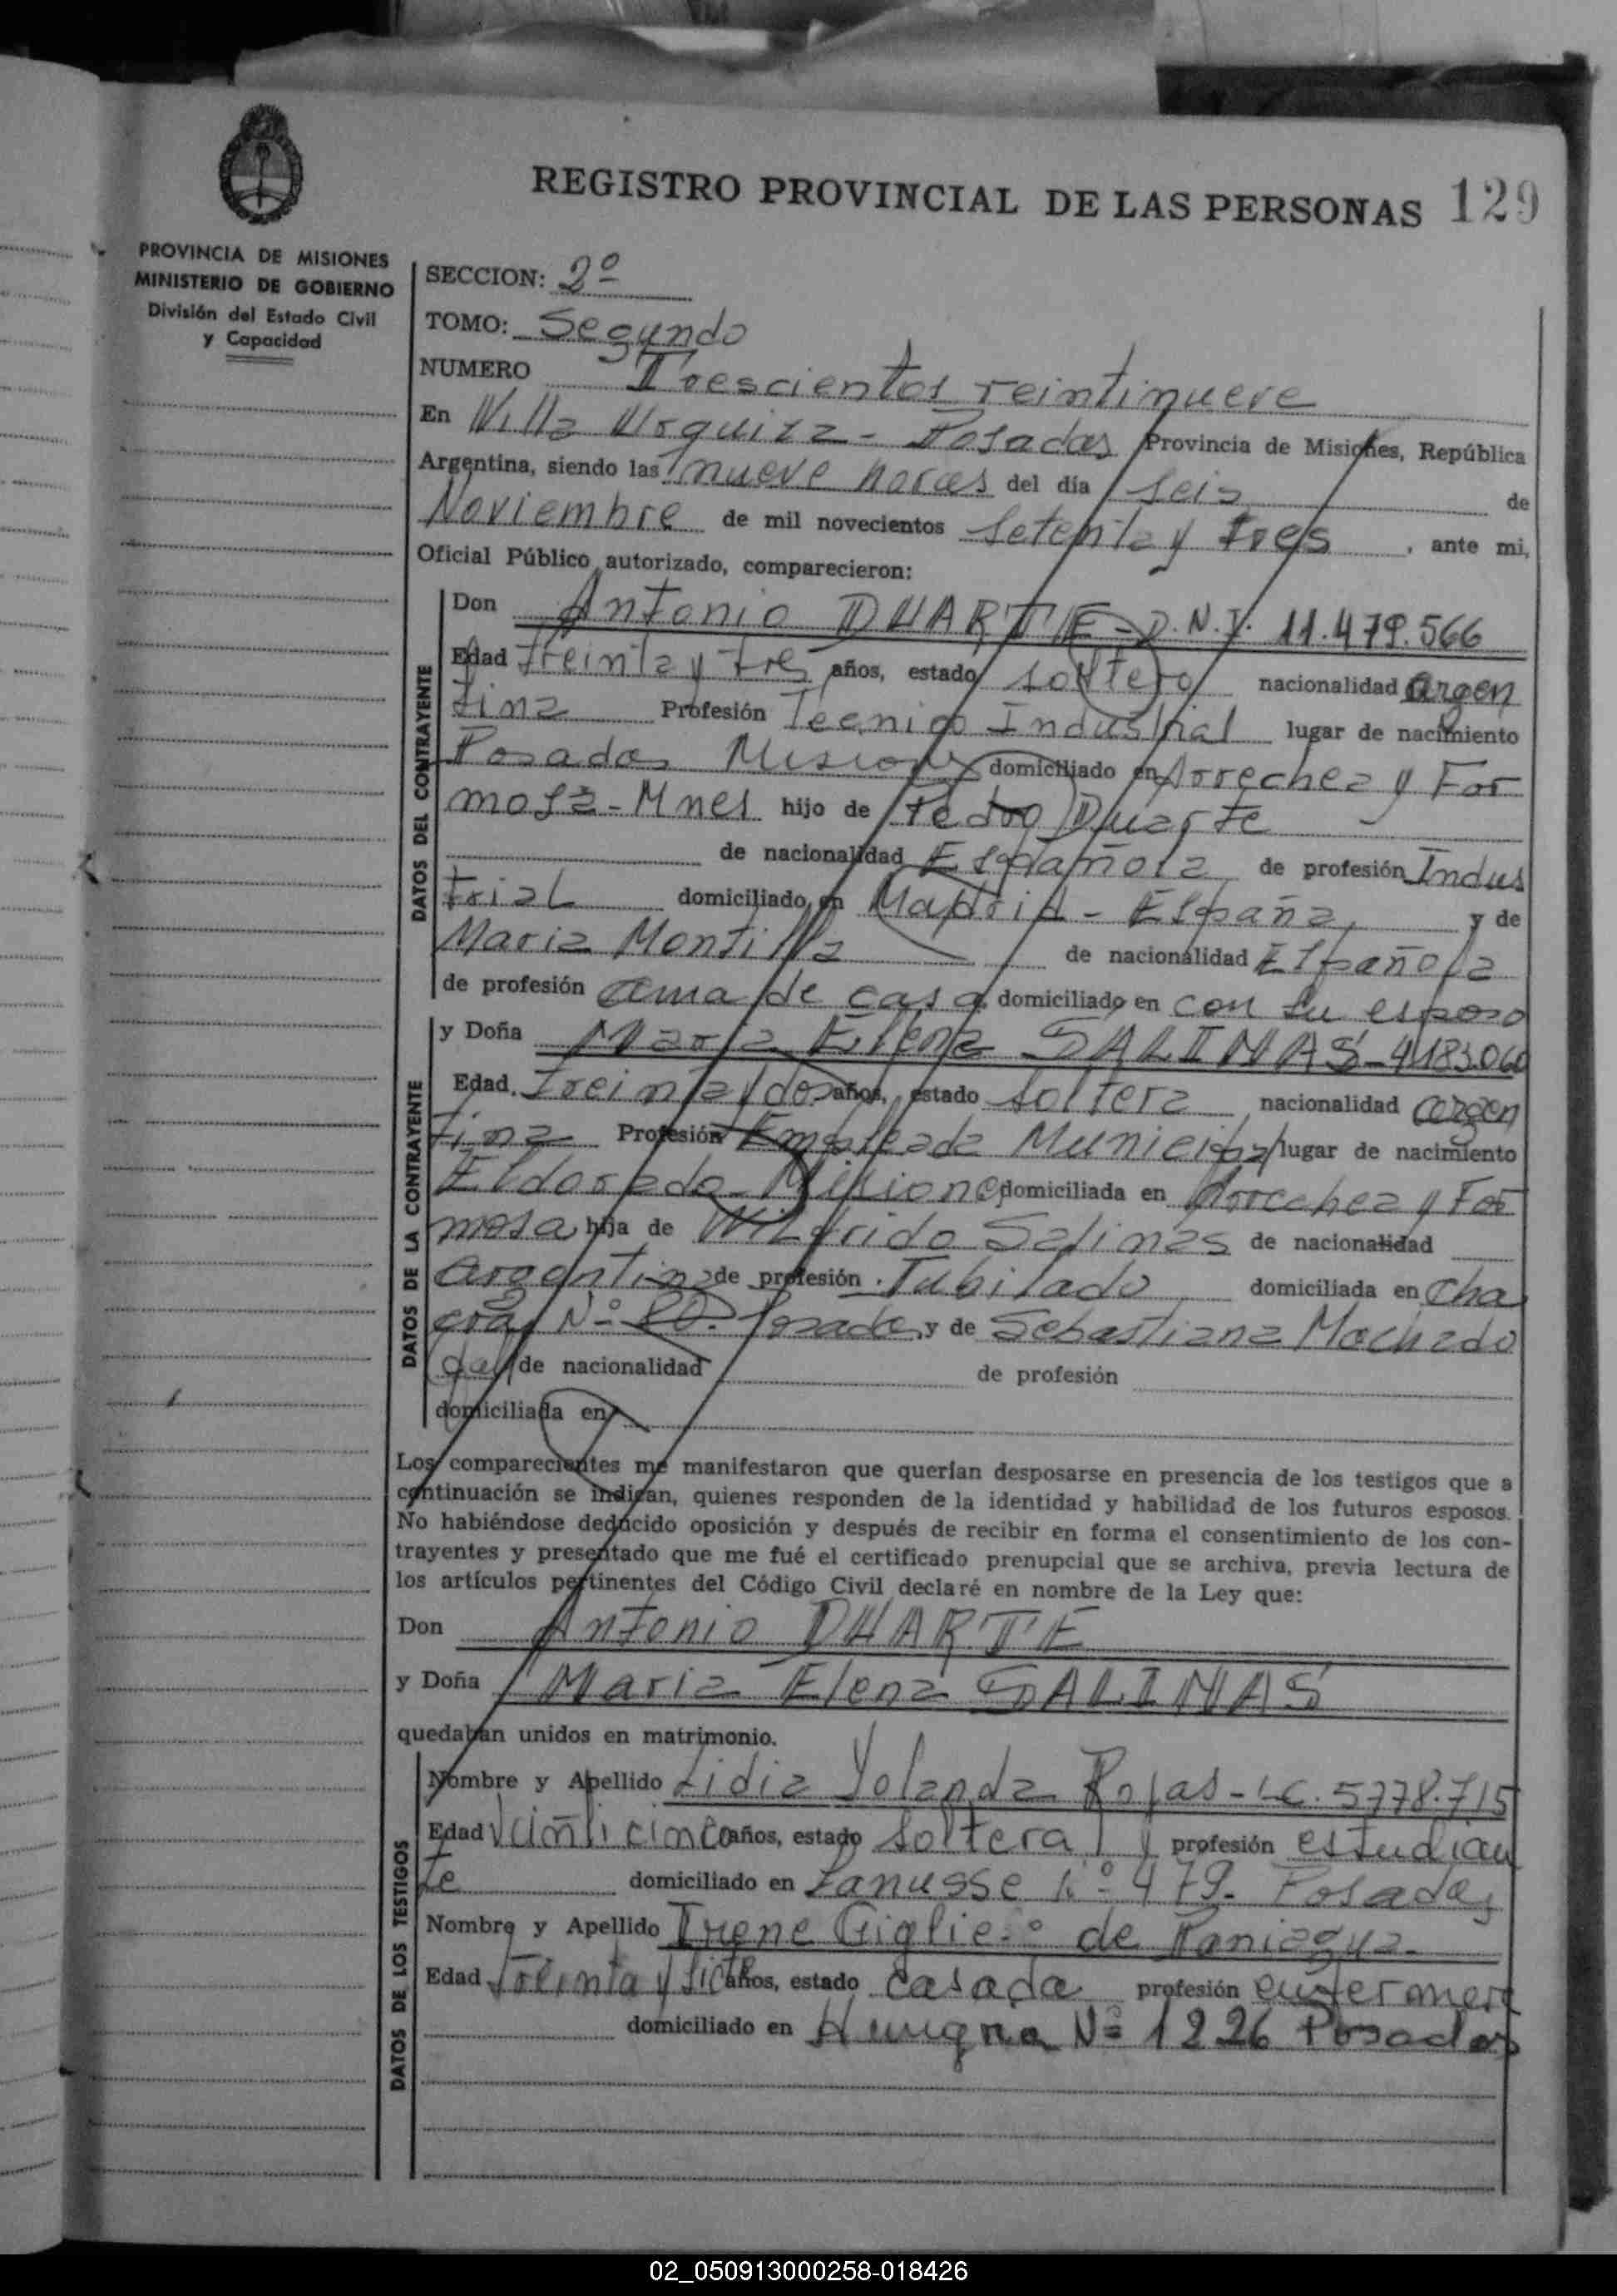 REGISTRO PROVINCIAL DE LAS PERSONAS 129
PROVINCIA DE MISIONES
MINISTERIO DE GOBIERNO
División del Estado Civil
y Capacidad
SECCION: 2º
TOMO: Segundo
NUMERO Trescientos veintinueve
En Villa Urquiza - Posadas Provincia de Misiones, República
Argentina, siendo las nueve horas del día seis de
Noviembre de mil novecientos setenta y tres, ante mi,
Oficial Público autorizado, comparecieron:
DATOS DEL CONTRAYENTE
Don Antonio DUARTE - D.N.I. 11.479.566
Edad treinta y tres años, estado soltero nacionalidad argen
tina Profesión Tecnico Industrial lugar de nacimiento
Posadas Misiones domiciliado en Arrechea y For
mosa - Mnes hijo de Pedro Duarte
de nacionalidad Española de profesión Indus
trial domiciliado en Madrid - España, y de
Maria Montilla de nacionalidad Española
de profesión ama de casa domiciliado en con su esposo
DATOS DE LA CONTRAYENTE
y Doña Maria Elena SALINAS - 4183.060
Edad. treinta y dos años, estado soltera nacionalidad argen
tina Profesión Empleada Municipal lugar de nacimiento
Eldorado - Misiones domiciliada en Arrechea y For
mosa hija de Wilfrido Salinas de nacionalidad
argentina de profesión Jubilado domiciliada en Cha
cra Nº 80. Posadas y de Sebastiana Machado
de nacionalidad de profesión
domiciliada en
Los comparecientes me manifestaron que querían desposarse en presencia de los testigos que a
continuación se indican, quienes responden de la identidad y habilidad de los futuros esposos.
No habiéndose deducido oposición y después de recibir en forma el consentimiento de los con-
trayentes y presentado que me fué el certificado prenupcial que se archiva, previa lectura de
los artículos pertinentes del Código Civil declaré en nombre de la Ley que:
Don Antonio DUARTE
y Doña Maria Elena SALINAS
quedaban unidos en matrimonio.
DATOS DE LOS TESTIGOS
Nombre y Apellido Lidia Yolanda Rojas - LC. 5778.715
Edad veinticinco años, estado soltera y profesión estudian
te domiciliado en Lanusse nº 479 - Posadas
Nombre y Apellido Irene de Paniagua.
Edad Treinta y siete años, estado casada profesión enfermera
domiciliado en Nº 1226 Posadas
02_050913000258-018426